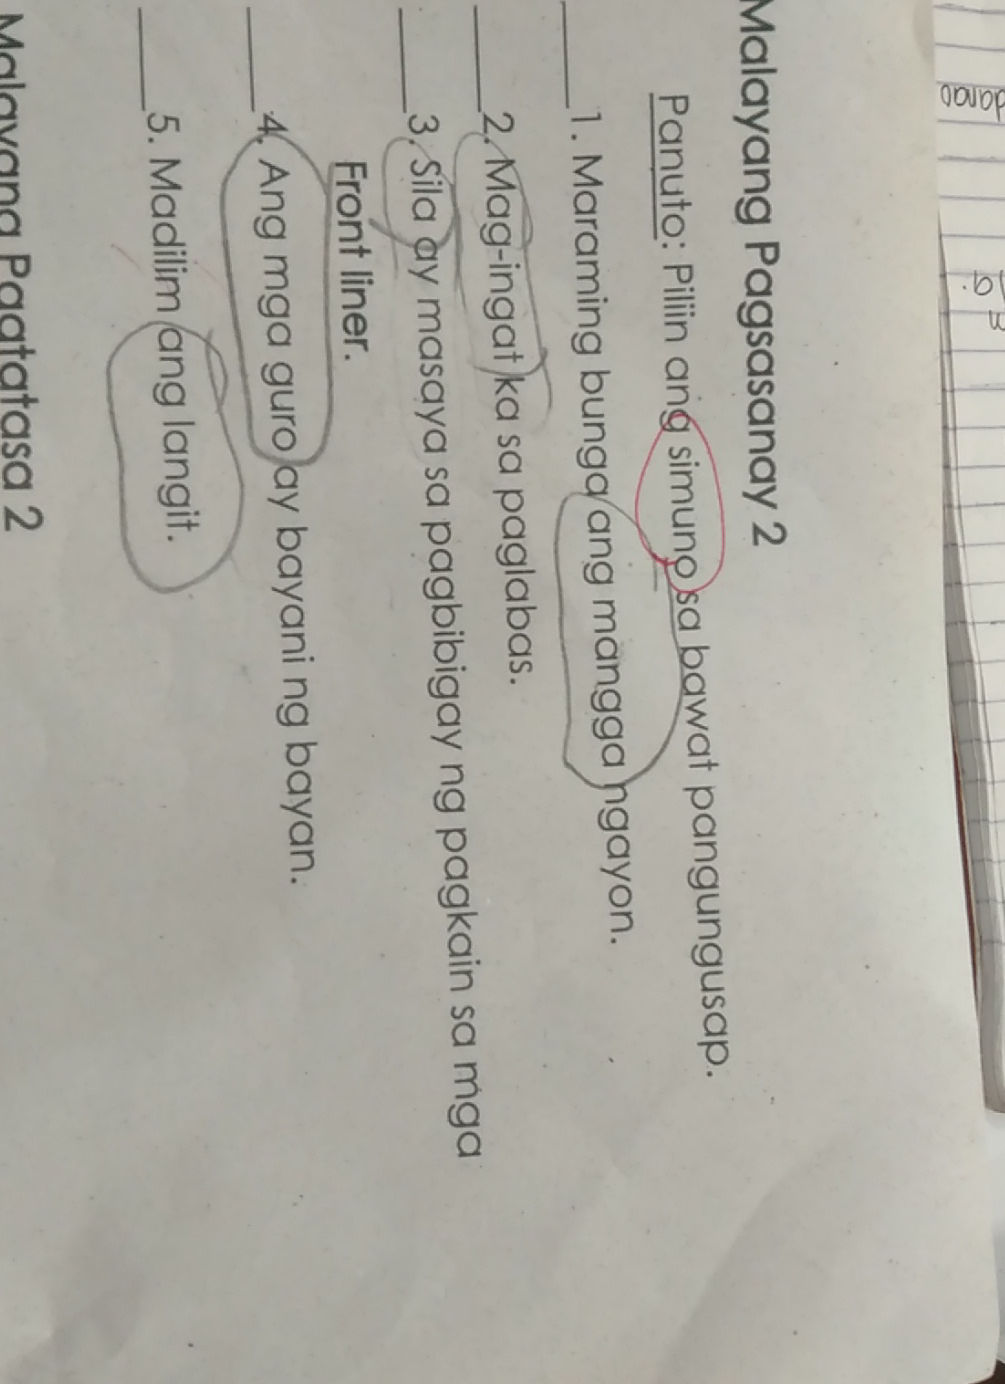 danao
a.
n
Malayang Pagsasanay 2
Panuto: Piliin ang simuno sa bawat pangungusap.
____1. Maraming bunga ang mangga ngayon.
____2. Mag-ingat ka sa paglabas.
____3. Sila ay masaya sa pagbibigay ng pagkain sa mga
Front liner.
____4. Ang mga guro ay bayani ng bayan.
____5. Madilim ang langit.
Malayang Pagtatasa 2